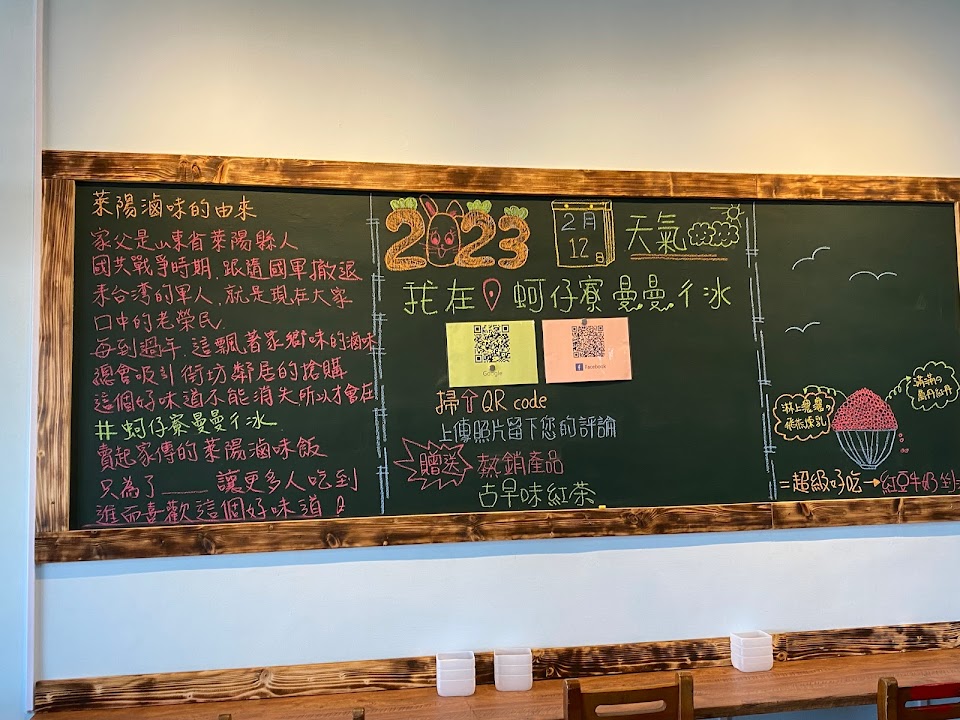 萊陽滷味的由來
家父是山東省萊陽縣人
國共戰爭時期，跟隨國軍撤退
來台湾的軍人，就是現在大家
口中的老榮民，
每到過年，這飄著家鄉味的滷味
總會吸引街坊鄰居的搶購
這個好味道不能消失，所以才會在
#蚵仔寮曼曼彳冰，
賣起家傳的萊陽滷味飯
只為了____讓更多人吃到
進而喜歡這個好味道
2023
2月
12日
天氣
我在 蚵仔寮曼曼彳冰
Google
Facebook
掃⇧QR code
上傳照片留下您的評論
贈送 熱銷產品
古早味紅茶
淋上
煉乳
滿滿の
=超級好吃→紅豆牛奶